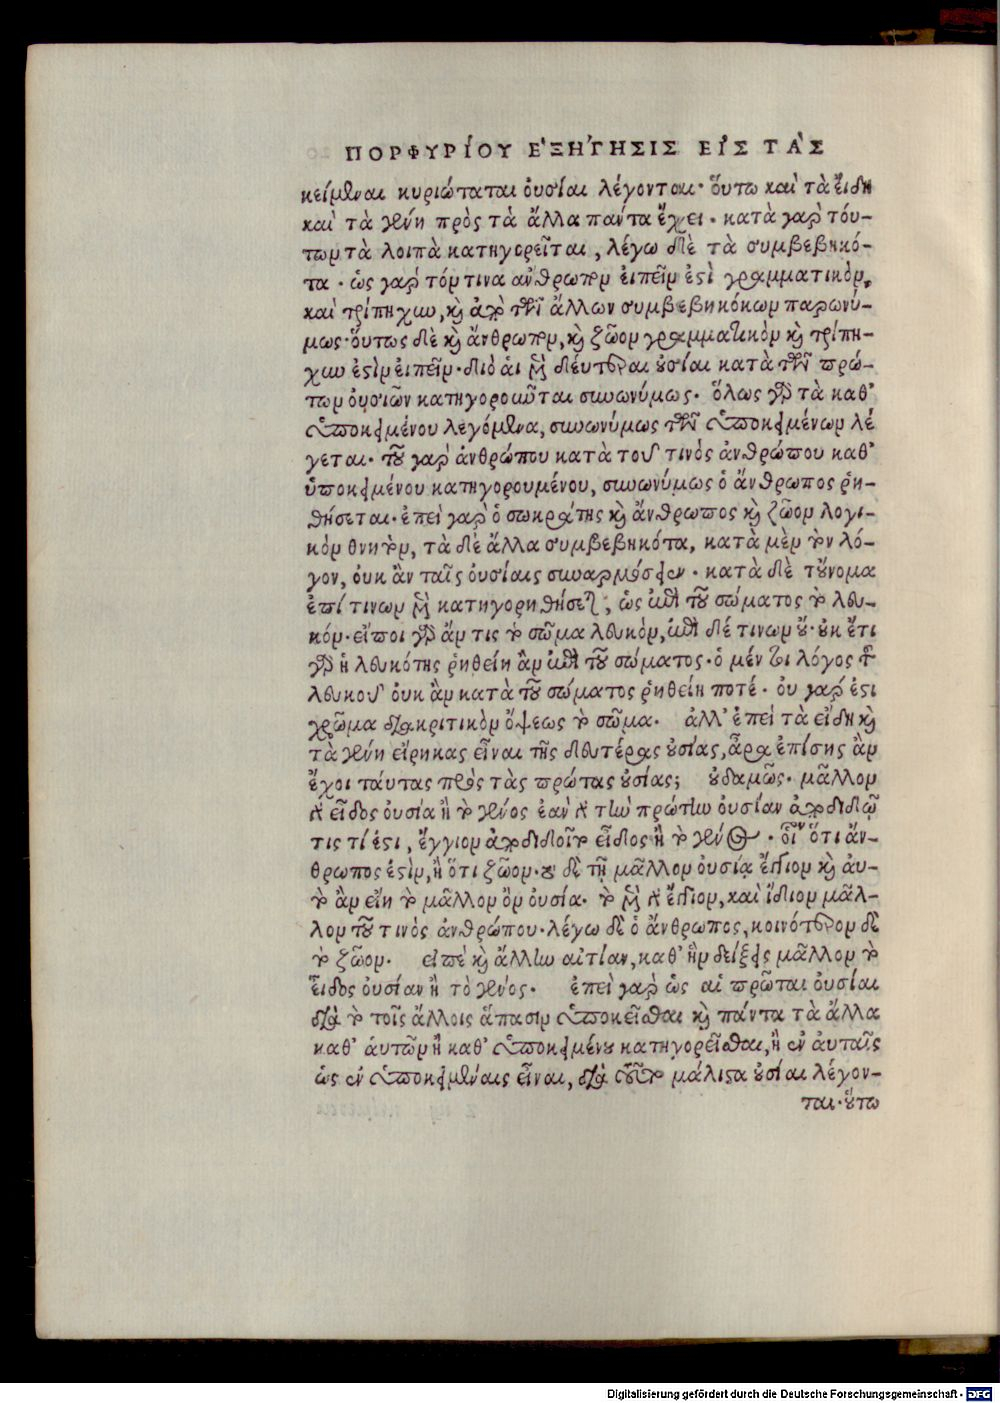 ΠΟΡΦΥΡΙΟΥ ΕʼΞΗΓΗΣΙΣ ΕΙʼΣ ΤΑΣ
κείμεναι κυριώταται ὀυσίαι λέγονται· ὅυτω καὶ τὰ ἔιδη
καὶ τὰ γένη πρὸς τὰ ἄλλα πάντα ἔχει. κατὰ γαρ τόυ-
των τὰ λοιπὰ κατηγορεῖται, λέγω δὲ τὰ συμβεβηκό-
τα. ὡς γαρ τόν τινα ἄνθρωπον ἐιπεῖν ἐστὶ γραμματικὸν,
καὶ τρίπηχυν, καὶ ἀπὸ τῶν ἄλλων συμβεβηκόκων παρωνύ-
μως· ὅυτως δὲ καὶ ἄνθρωπον, καὶ ζῶον γραμματικὸν καὶ τρίπη-
χυν ἐστὶν ἐιπεῖν. διὸ ἁι μὲν δέυτεραι ὀυσίαι κατὰ τῶν πρώ-
των ὀυσιῶν κατηγοροῦνται συνωνύμως. ὅλως γὰρ τὰ καθʼ
ὑποκειμένου λεγόμενα, συνωνύμως τῶν ὑποκειμένων λέ
γεται. τοῦ γαρ ἀνθρώπου κατὰ τοῦ τινὸς ἀνθρώπου καθʼ
ὑποκειμένου κατηγορουμένου, συνωνύμως ὁ ἄνθρωπος ῥη-
θήσεται. ἐπεὶ γαρ ὁ σωκράτης καὶ ἄνθρωπος καὶ ζῶον λογι-
κὸν θνητὸν, τὰ δὲ ἄλλα συμβεβηκότα, κατὰ μὲν τὸν λό-
γον, ὀυκ ἂν ταῖς ὀυσίαις συναρμόσειεν. κατὰ δὲ τοὔνομα
ἐπί τινων μὲν κατηγορηθήσεται, ὡς κατὰ τοῦ σώματος τὸ λευ-
κόν. εἴποι γὰρ ἄν τις τὸ σῶμα λευκὸν, κατὰ δέ τινων οὔ. ὀυκ ἔτι
γὰρ ἡ λευκότης ῥηθείη ἂν κατὰ τοῦ σώματος. ὁ μέν τοι λόγος τοῦ
λευκοῦ ὀυκ ἂν κατὰ τοῦ σώματος ῥηθείη ποτέ. ὀυ γαρ ἐστι
χρῶμα διακριτικὸν ὄψεως τὸ σῶμα. ἀλλʼ ἐπεὶ τὰ εἴδη καὶ
τὰ γένη εἴρηκας εἶναι τῆς δευτέρας ὀυσίας, ἆρα ἐπίσης ἂν
ἔχοι τάυτας πρὸς τὰς πρώτας ὀυσίας; ὀυδαμῶς. μᾶλλον
τὸ εἶδος ὀυσία ἢ τὸ γένος ἐὰν γὰρ τὴν πρώτην ὀυσίαν ἀποδιδῷ
τις τί ἐστι, ἔγγιον ἀποδιδοῖ τὸ εἶδος ἢ τὸ γένος. οἷον ὅτι ἄν-
θρωπος ἐστὶν, ἢ ὅτι ζῶον. τὸ δὲ τῇ μᾶλλον ὀυσίᾳ ἔγγιον καὶ ἀυ-
τὸ ἂν εἴη τὸ μᾶλλον ὂν ὀυσία. τὸ μὲν γὰρ ἔγγιον, καὶ ἴδιον μᾶλ-
λον τοῦ τινὸς ἀνθρώπου. λέγω δὲ ὁ ἄνθρωπος, κοινότερον δὲ
τὸ ζῶον. εἰπὲ καὶ ἄλλην αἰτίαν, καθʼ ἣν δείξεις μᾶλλον τὸ
εἶδος ὀυσίαν ἢ τὸ γένος. ἐπεὶ γαρ ὡς αἱ πρῶται ὀυσίαι
διὰ τὸ τοῖς ἄλλοις ἅπασιν ὑποκεῖσθαι καὶ πάντα τὰ ἄλλα
καθʼ ἁυτῶν ἢ καθʼ ὑποκειμένου κατηγορεῖσθαι, ἢ ἐν ἀυταῖς
ὡς ἐν ὑποκειμέναις εἶναι, διὰ τοῦτο μάλιστα ὀυσίαι λέγον-
ται· ὅυτω
Digitalisierung gefördert durch die Deutsche Forschungsgemeinschaft - DFG